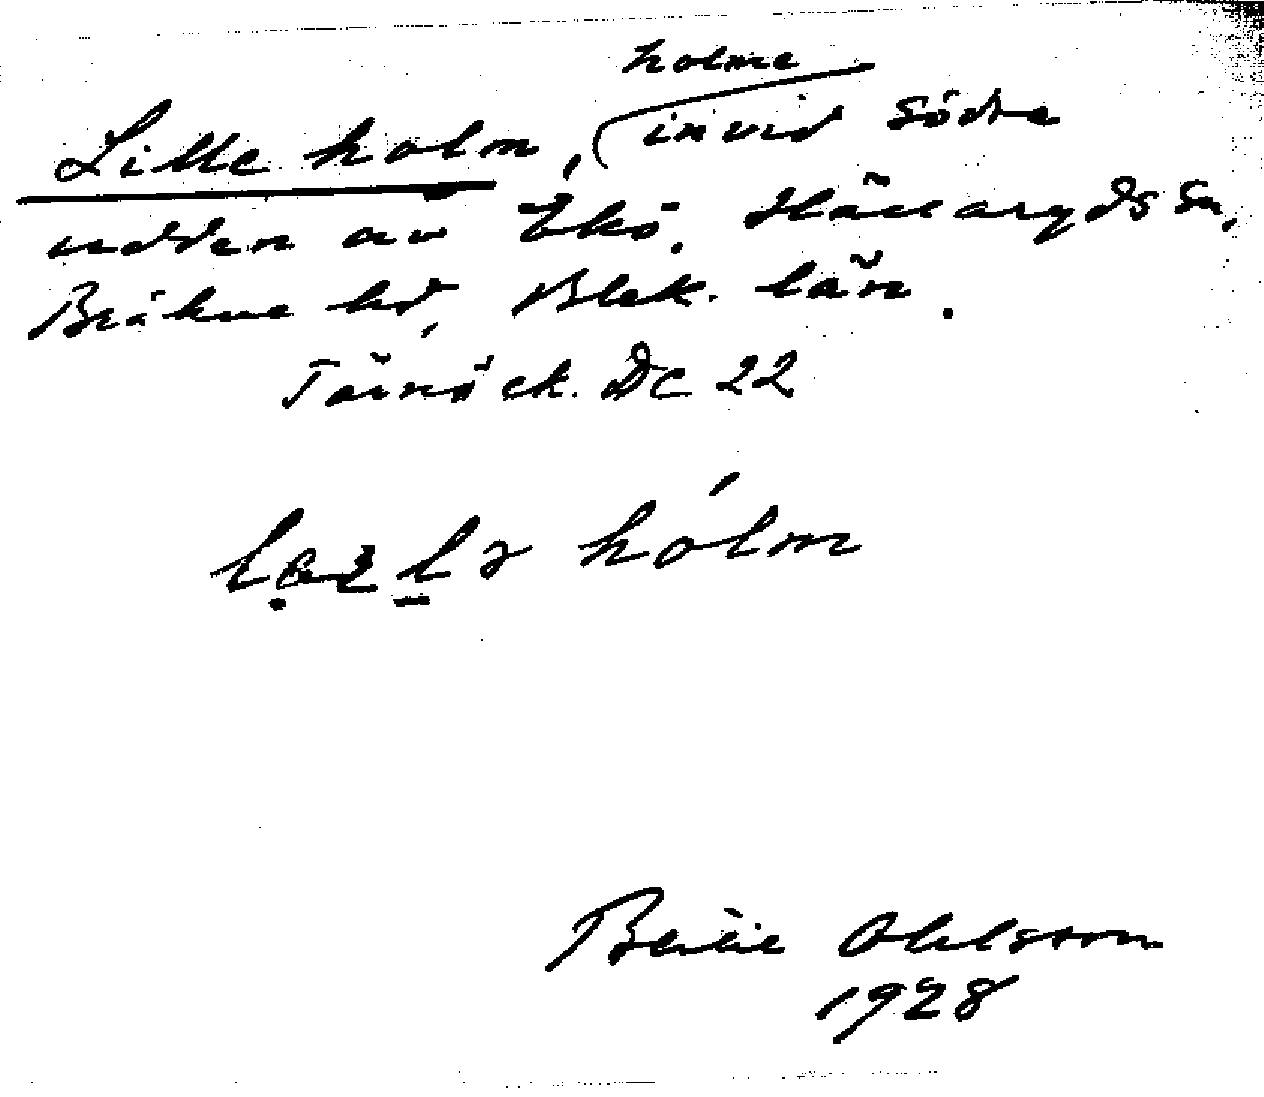 holme
Lilleholm, invid södra
udden av Ekö. Hällaryds sn,
Bräkne hd, Blek. län.
Tärnö ek. DC 22
hólm
Bertil Ohlsson
1928